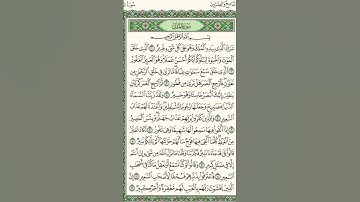 سُورَةُ المُلْكِ
بِسْمِ اللَّهِ الرَّحْمَٰنِ الرَّحِيمِ
تَبَارَكَ الَّذِي بِيَدِهِ الْمُلْكُ وَهُوَ عَلَىٰ كُلِّ شَيْءٍ قَدِيرٌ ١ الَّذِي خَلَقَ
الْمَوْتَ وَالْحَيَاةَ لِيَبْلُوَكُمْ أَيُّكُمْ أَحْسَنُ عَمَلًا وَهُوَ الْعَزِيزُ الْغَفُورُ ٢
الَّذِي خَلَقَ سَبْعَ سَمَاوَاتٍ طِبَاقًا مَّا تَرَىٰ فِي خَلْقِ الرَّحْمَٰنِ مِن
تَفَاوُتٍ فَارْجِعِ الْبَصَرَ هَلْ تَرَىٰ مِن فُطُورٍ ٣ ثُمَّ ارْجِعِ الْبَصَرَ كَرَّتَيْنِ
يَنقَلِبْ إِلَيْكَ الْبَصَرُ خَاسِئًا وَهُوَ حَسِيرٌ ٤ وَلَقَدْ زَيَّنَّا السَّمَاءَ
الدُّنْيَا بِمَصَابِيحَ وَجَعَلْنَاهَا رُجُومًا لِّلشَّيَاطِينِ وَأَعْتَدْنَا لَهُمْ
عَذَابَ السَّعِيرِ ٥ وَلِلَّذِينَ كَفَرُوا بِرَبِّهِمْ عَذَابُ جَهَنَّمَ وَبِئْسَ الْمَصِيرُ ٦
إِذَا أُلْقُوا فِيهَا سَمِعُوا لَهَا شَهِيقًا وَهِيَ تَفُورُ ٧ تَكَادُ تَمَيَّزُ
مِنَ الْغَيْظِ كُلَّمَا أُلْقِيَ فِيهَا فَوْجٌ سَأَلَهُمْ خَزَنَتُهَا أَلَمْ يَأْتِكُمْ نَذِيرٌ ٨
قَالُوا بَلَىٰ قَدْ جَاءَنَا نَذِيرٌ فَكَذَّبْنَا وَقُلْنَا مَا نَزَّلَ اللَّهُ مِن شَيْءٍ إِنْ أَنتُمْ
إِلَّا فِي ضَلَالٍ كَبِيرٍ ٩ وَقَالُوا لَوْ كُنَّا نَسْمَعُ أَوْ نَعْقِلُ مَا كُنَّا فِي أَصْحَابِ
السَّعِيرِ ١٠ فَاعْتَرَفُوا بِذَنبِهِمْ فَسُحْقًا لِّأَصْحَابِ السَّعِيرِ ١١
إِنَّ الَّذِينَ يَخْشَوْنَ رَبَّهُم بِالْغَيْبِ لَهُم مَّغْفِرَةٌ وَأَجْرٌ كَبِيرٌ ١٢